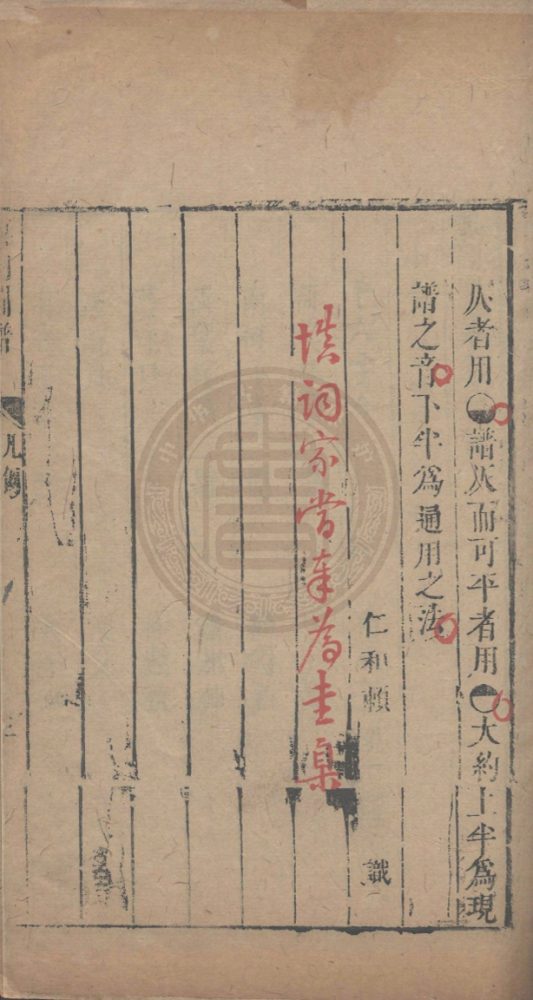 仄者用◓譜仄而可平者用◒大約上半爲現
譜之音下半爲通用之法
仁和賴
識
填词家當奉為圭臬
凡例